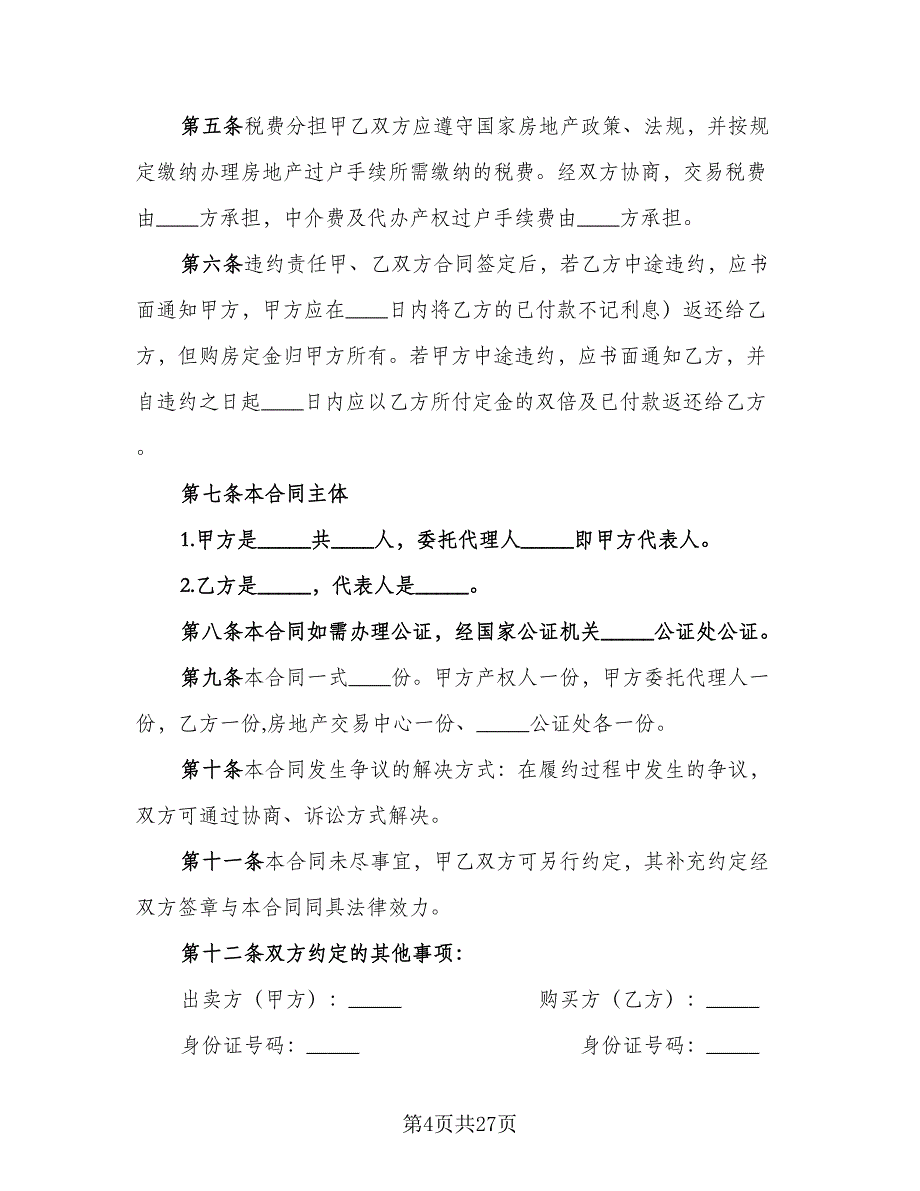 第五条税费分担甲乙双方应遵守国家房地产政策、法规，并按规
定缴纳办理房地产过户手续所需缴纳的税费。经双方协商，交易税费
由____方承担，中介费及代办产权过户手续费由____方承担。
第六条违约责任甲、乙双方合同签定后，若乙方中途违约，应书
面通知甲方，甲方应在____日内将乙方的已付款不记利息）返还给乙
方，但购房定金归甲方所有。若甲方中途违约，应书面通知乙方，并
自违约之日起____日内应以乙方所付定金的双倍及已付款返还给乙方
。
第七条本合同主体
1.甲方是_____共____人，委托代理人_____即甲方代表人。
2.乙方是_____，代表人是_____。
第八条本合同如需办理公证，经国家公证机关_____公证处公证。
第九条本合同一式____份。甲方产权人一份，甲方委托代理人一
份，乙方一份,房地产交易中心一份、_____公证处各一份。
第十条本合同发生争议的解决方式：在履约过程中发生的争议，
双方可通过协商、诉讼方式解决。
第十一条本合同未尽事宜，甲乙双方可另行约定，其补充约定经
双方签章与本合同同具法律效力。
第十二条双方约定的其他事项：
出卖方（甲方）：_____ 购买方（乙方）：_____
身份证号码：_____ 身份证号码：_____
第4页共27页